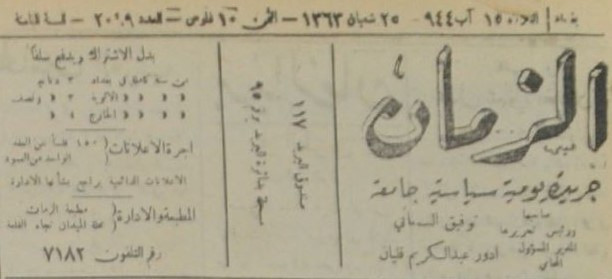 بغداد الثلاثاء ١٥ آب ٩٤٤ - ٢٥ شعبان ١٣٦٣ - الثمن ١٠ فلوس - العدد ٢٠٩ - السنة الثامنة
الزمان
جريدة يومية سياسية جامعة
صاحبها
ورئيس تحريرها
توفيق السمعاني
المدير المسؤول
المحامي
ادور عبدالكريم قليان
صندوق البريد ١١٧
مسجلة بدائرة البريد برقم ٩٥
بدل الاشتراك ويدفع سلفاً
عن سنة كاملة في بغداد ٣ دنانير
» » » الالوية ٣ » ونصف
» » » الخارج ٤ »
اجرة الاعلانات (١٥٠ فلساً عن العقد الواحد من العمود
الاعلانات الدائمية يراجع بشأنها الادارة
المطبعة والادارة ( مطبعة الزمان
محلة الميدان تجاه القلعة
رقم التلفون ٧١٨٢